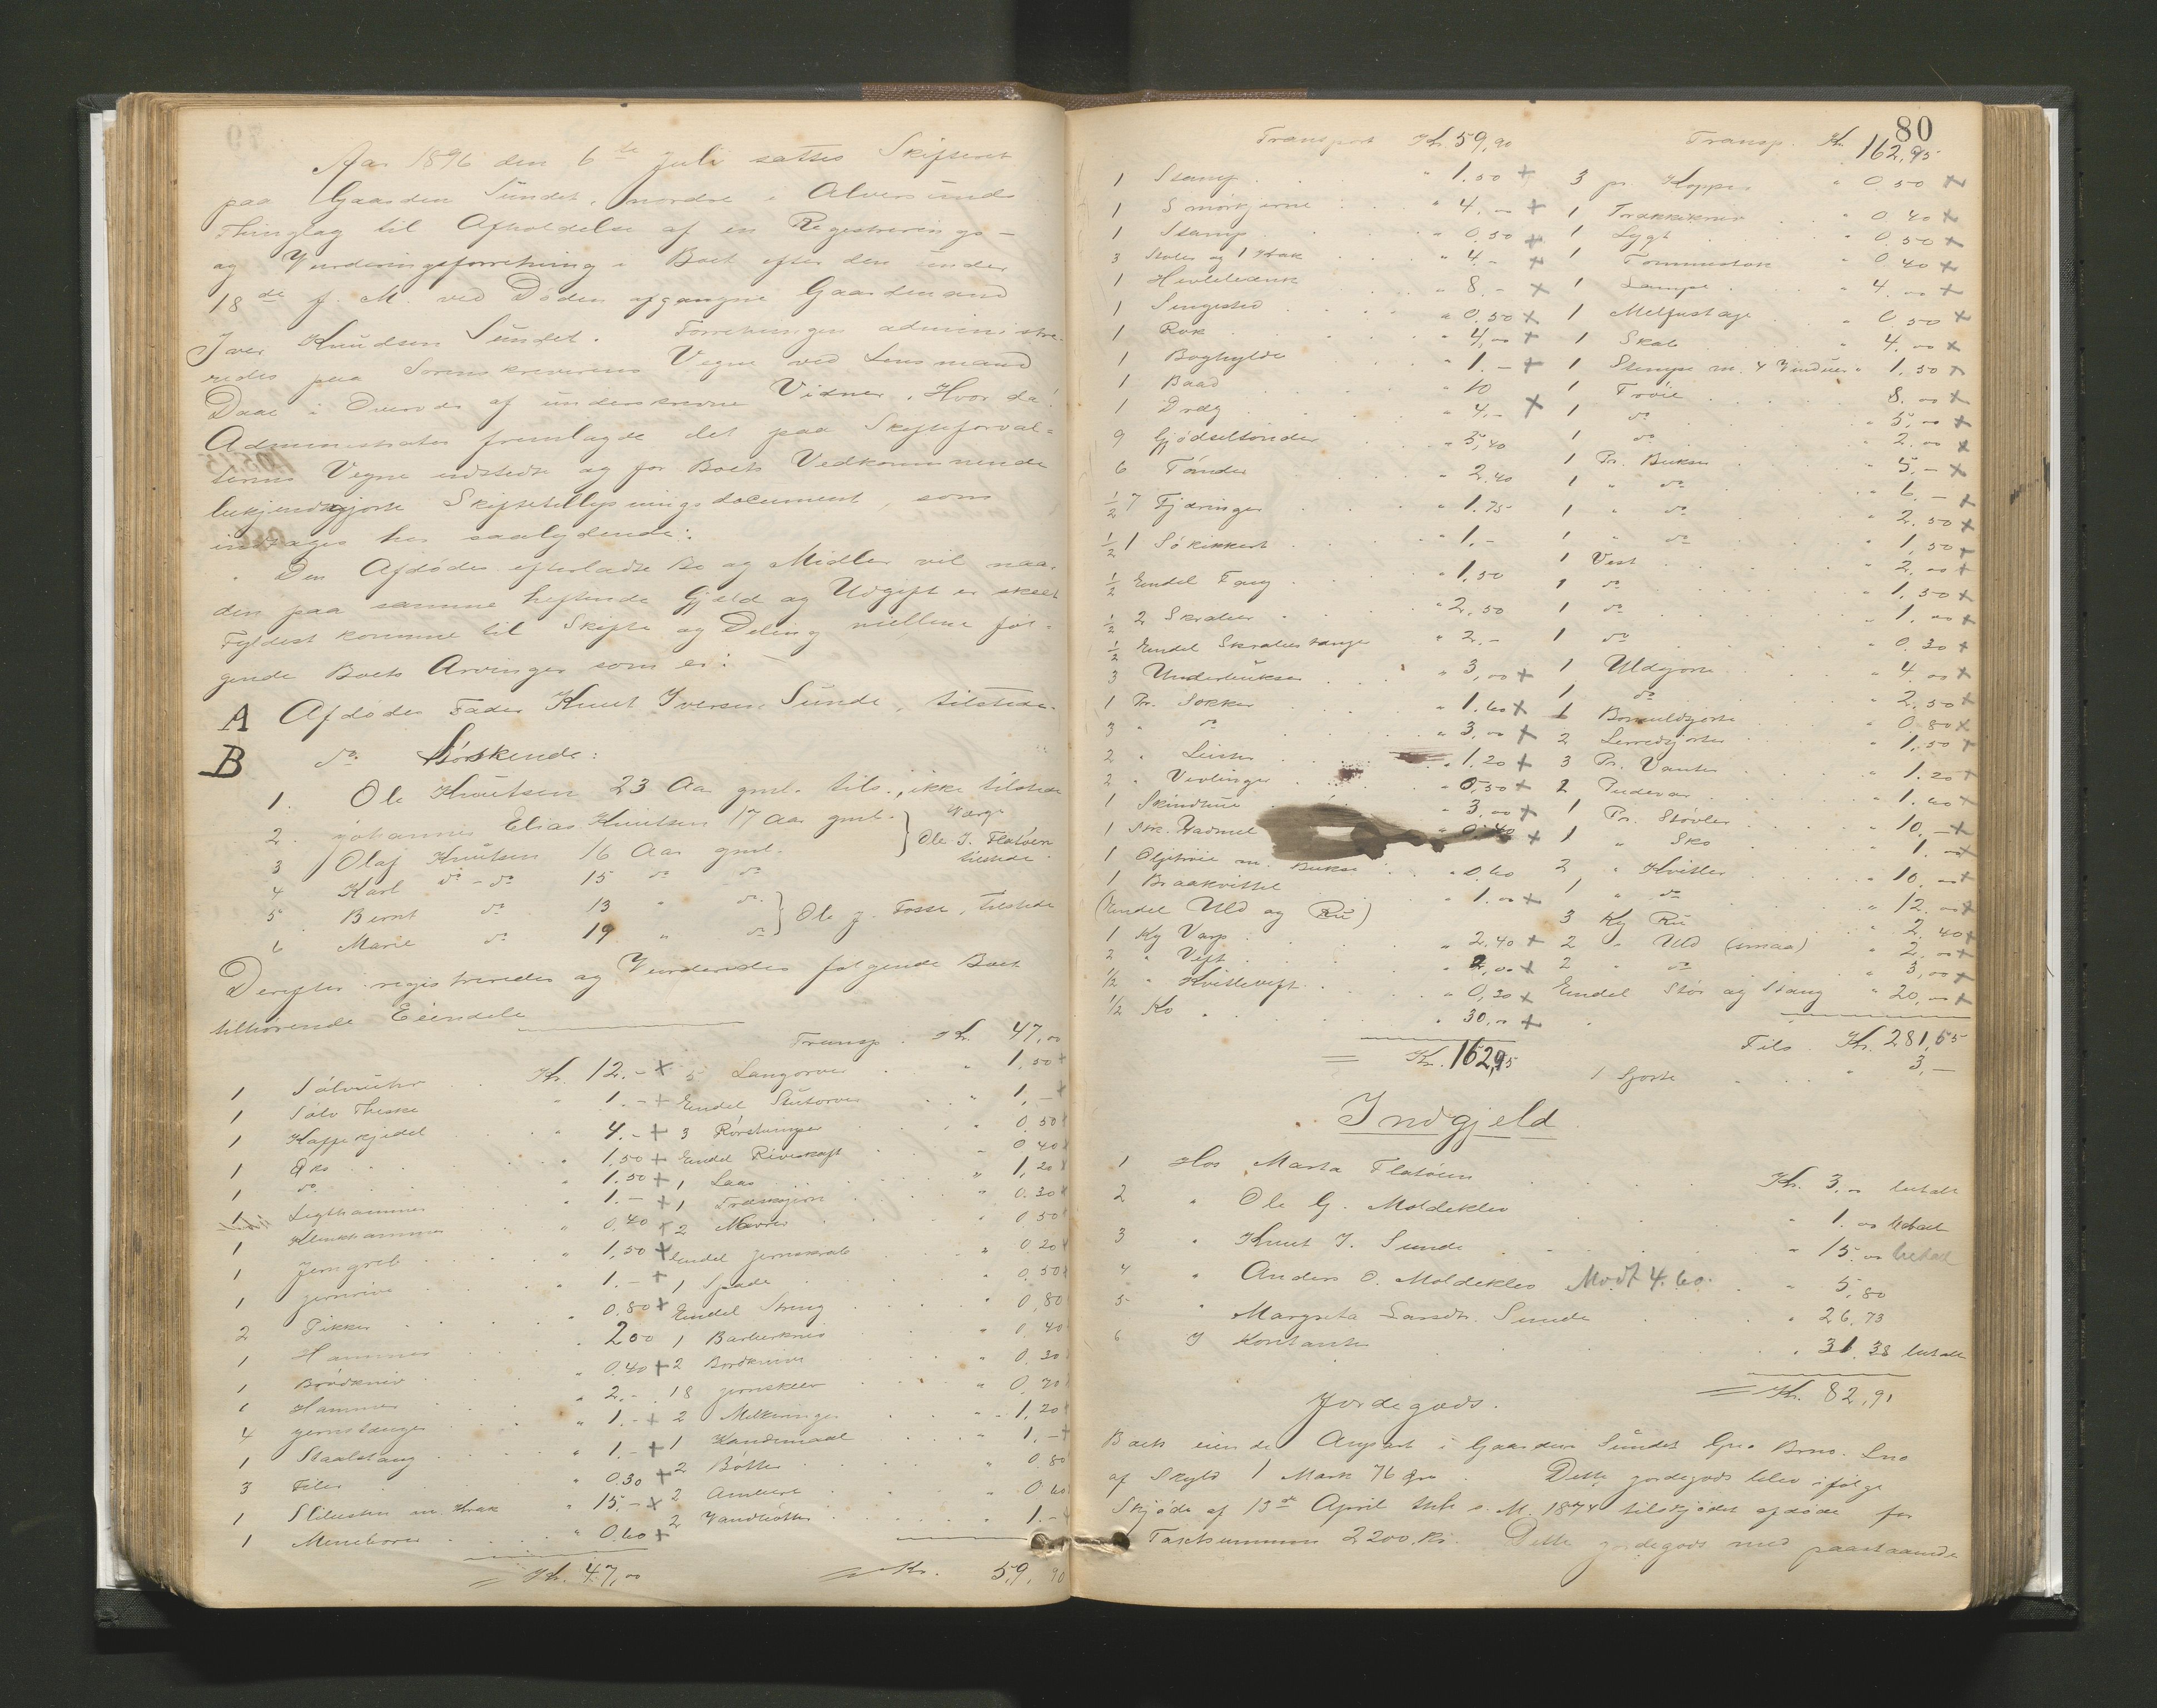 Aar 1896 den 6te Juli sattes Skifteret
paa Gaarden Sundet, nordre i Alversunds
Thinglag til Afholdelse af en Registrerings-
og Vurderingsforretning i Boet efter den under
18de f. M. ved Døden afgangne Gaardmand
Iver Knudsen Sundet. Forretningen administre-
redes paa Sorenskriverens Vegne ved Lensmand
Daae i Overvær af underskrevne Vidner. Hvor da!
Administrator fremlagde det paa Skifteforval=
terens Vegne udstedte og for Boets Vedkommende
bekjendtgjorte Skiftetillysningsdocument, som
indtages her saalydende:
Den Afdødes efterladte Bo og Midler vil naar
den paa samme heftende Gjeld og Udgift er skeet
Fyldest komme til Skifte og Deling mellem føl-
gende Boets Arvinger som er:
A Afdødes Fader Knut Iversen Sunde, tilstede.
B do Søskende:
1. Ole Knutsen 23 Aar gml. , ikke tilstede
2. Johannes Elias Knutsen 17 Aar gml. Værge
3 Olaf Knutsen 16 Aar gml. Ole J. Flatøen
tilstede
4 Karl do - do 15 do do
5 Bernt do 13 " do Ole J. Fosse, tilstede
6 Marie do 19 " do
Derefter registreredes og Vurderedes følgende Boet
tilhørende Eiendele
Transp. Kr. 47,00
1 Sølvuhr Kr. 12.- + 5 Langorver " 1,50 +
1 Sølv Theske " 1.- + Endel Stutorver " 1,- +
1 Kaffekjedel " 4.- + 3 Rørstumper " 0,50 +
1 Øks " 1,50 + Endel Riveskaft " 0 40
1 do " 1.50 + 1 Laas " 1,20
1 Legthammer " 1.- + 1 " 0.30
1 Klinkhammer " 0,40 + 2 " 0,50
1 Jerngreb " 1,50 + Endel Jernskrab " 0,20
1 Jernrive " 1.- + 1 Spade " 0,50
2 Pikker " 0,80 + Endel Streng " 0,80
1 Hammer " 2 00 1 Barberkniv " 0,40
1 Brødkniv " 0,40 + 2 Bordknive " 0,30
1 Hammer " 2,- 18 Jernskeer " 0,70
4 Jernstænger " 1.- + 2 Melkeringe " 1,20
1 Staalstang " 1.- + 1 Kandemaal " 1.- +
3 Filer " 0,30 + 2 Bøtter " 0,80
1 Slibesten m. Krak " 15,- + 2 Ambere " 0 60
1 Minebore " 0,60 + 2 Vandbøtter " 1.-
= Kr. 47,00 = Kr. 59,90
80
Transport Kr. 59,90 Transp. Kr. 162,95
1 Stamp " 1.50 + 3 pr. Kopper " 0 50 +
1 Smørkjerne " 4.- + 1 " 0 40 +
1 Stamp " 0,50 + 1 Lygt " 0 50 +
3 Stoler og 1 Krak " 4.- + 1 Tommestok " 0 40 +
1 " 8.- + 1 Lampe " 4.00 +
1 Sengested " 0,50 + 1 Melfustage " 0 50 +
1 Rok " 4,00 + 1 Skab " 4.00 +
1 Boghylde " 1.- + 1 m. 4 Vinduer " 1,50 +
1 Baad " 10 1 Trøie " 8.00 +
1 Dræg " 4.- + 1 do " 5,00 +
9 Gjødseltønder " 5,40 1 do " 2.00 +
6 Tønder " 2.40 1 Pr. Buxer " 5.- +
½ 7 Fjæringer " 1.75 1 " do " 6.- +
½ 1 Søkikkert " 1.- 1 " do " 2.50 +
½ Endel Taug " 1,50 1 " do " 1,50 +
1 Vest " 2.00 +
½ 2 Skrabere " 2,50 1 do " 1,50 +
½ Endel " 2.- 1 do " 1.00 +
3 Underbukser " 3,00 + 1 do " 0.30 +
1 Pr. Sokker " 1.60 + 1 Uldgjorte " 4.00 +
3 " do " 3,00 + 1 do " 2,50 +
2 " Leister " 1,20 + 1 Bomuldgjorte " 0.80 +
2 " Vevlinger " 0,50 + 2 Lerredgjorter " 1,50 +
1 " 3,00 + 3 Pr. Vanter " 1.20 +
1 Stk. Vadmel " 0.40 + 2 Pudevar " 1.60 +
1 Oljetrøie m. Bukse " 0.60 1 Pr. Støvler " 10,- +
1 Braakvittel " 1.00 + 1 " Sko " 1.- +
(Endel Uld og Ru) 2 " Kvitler " 10.00 +
1 " do " 12.00 +
1 Kg Varp " 2.40 + 3 Kg Ru " 2.40 +
2 " Veft " 2,00 + 2 " Uld (smaa) " 2.00 +
½ " Kvitleveft " 0,30 + 2 " do " 3,00 +
½ Ko " 30,00 + Endel Stør og Stang " 20,00 +
= Kr. 162,95 Tils. Kr. 281,65
1 Gjorte " 3,-
Indgjeld
1 Hos Marta Flatøen Kr. 3,00 betalt
2 " Ole G. Moldeklev " 1.00 betalt
3 " Knut I. Sunde " 15.00 betalt
4 " Anders O. Moldeklev Modt 4.60. " 5,80
5 " Margreta Larsdtr. Sunde " 26,73
6 I Kontanter " 31,38 betalt
= Kr. 82,91
Jordegods.
Boets eiende Anpart i Gaarden Sundet Gno Brno. Lno
af Skyld 1 Mark 76 Øre. Dette Jordegods blev ifølge
Skjøde af 13de April thl. s. M. 1874 tilskjødet afdøde for
Taxtsummen 2200 Kr. Dette Jordegods med paastaaende